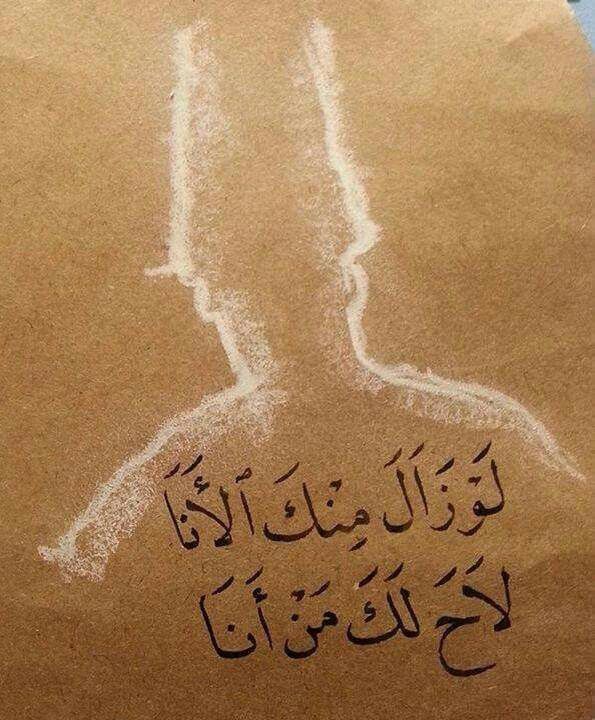 لَوْ زَاَلَ مِنْكَ ٱلأَنَا
لاَحَ لَكَ مَنْ أَنَا